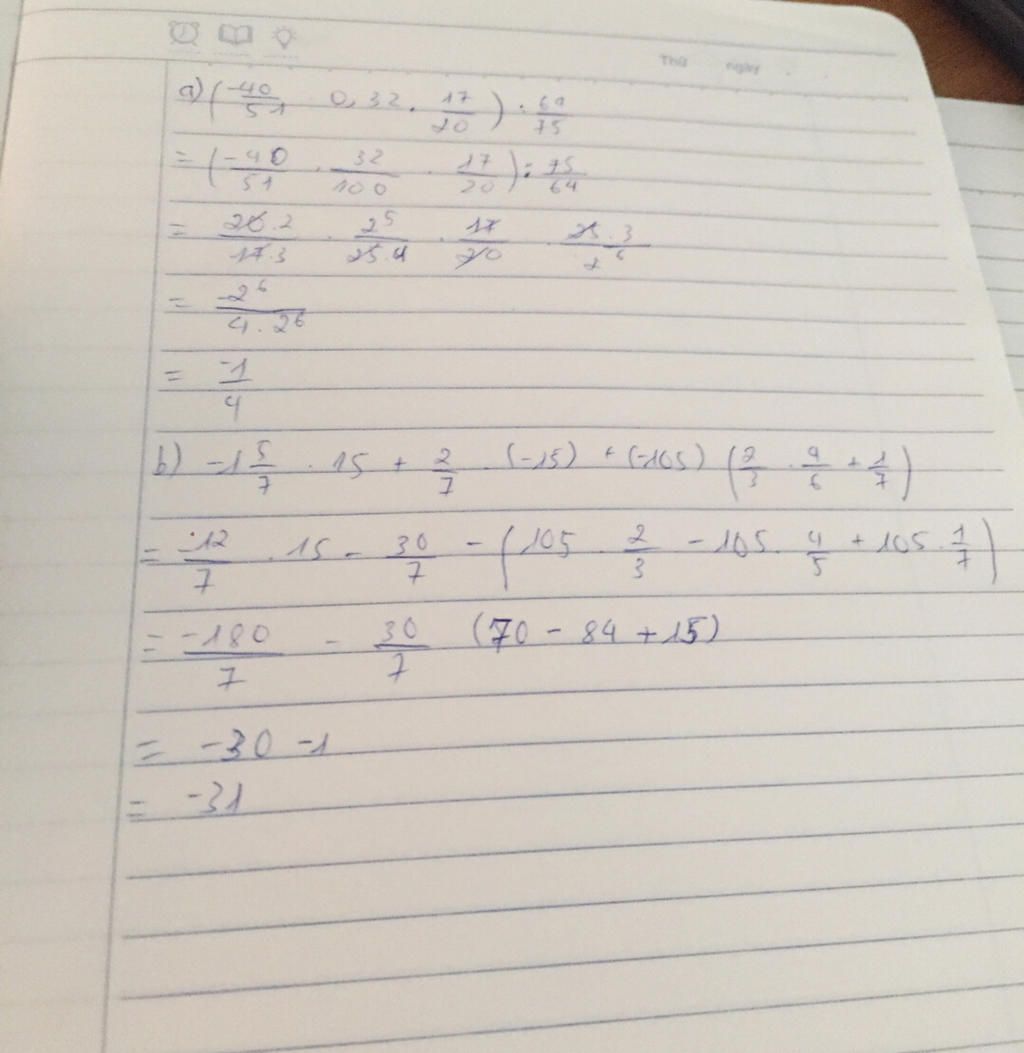 Thứ ngày
a) (-40/51 . 0,32 . 17/20) : 64/75
= (-40/51 . 32/100 . 17/20) : 75/64
= 20.2/17.3 . 2^5/25.4 . 17/20 . 25.3/2^6
= -2^6/4.2^6
= -1/4
b) -1 5/7 . 15 + 2/7 . (-15) + (-105) (2/3 . 4/6 + 1/7)
= -12/7 . 15 - 30/7 - (105 . 2/3 - 105 . 4/5 + 105 . 1/7)
= -180/7 - 30/7 (70 - 84 + 15)
= -30 -1
= -31